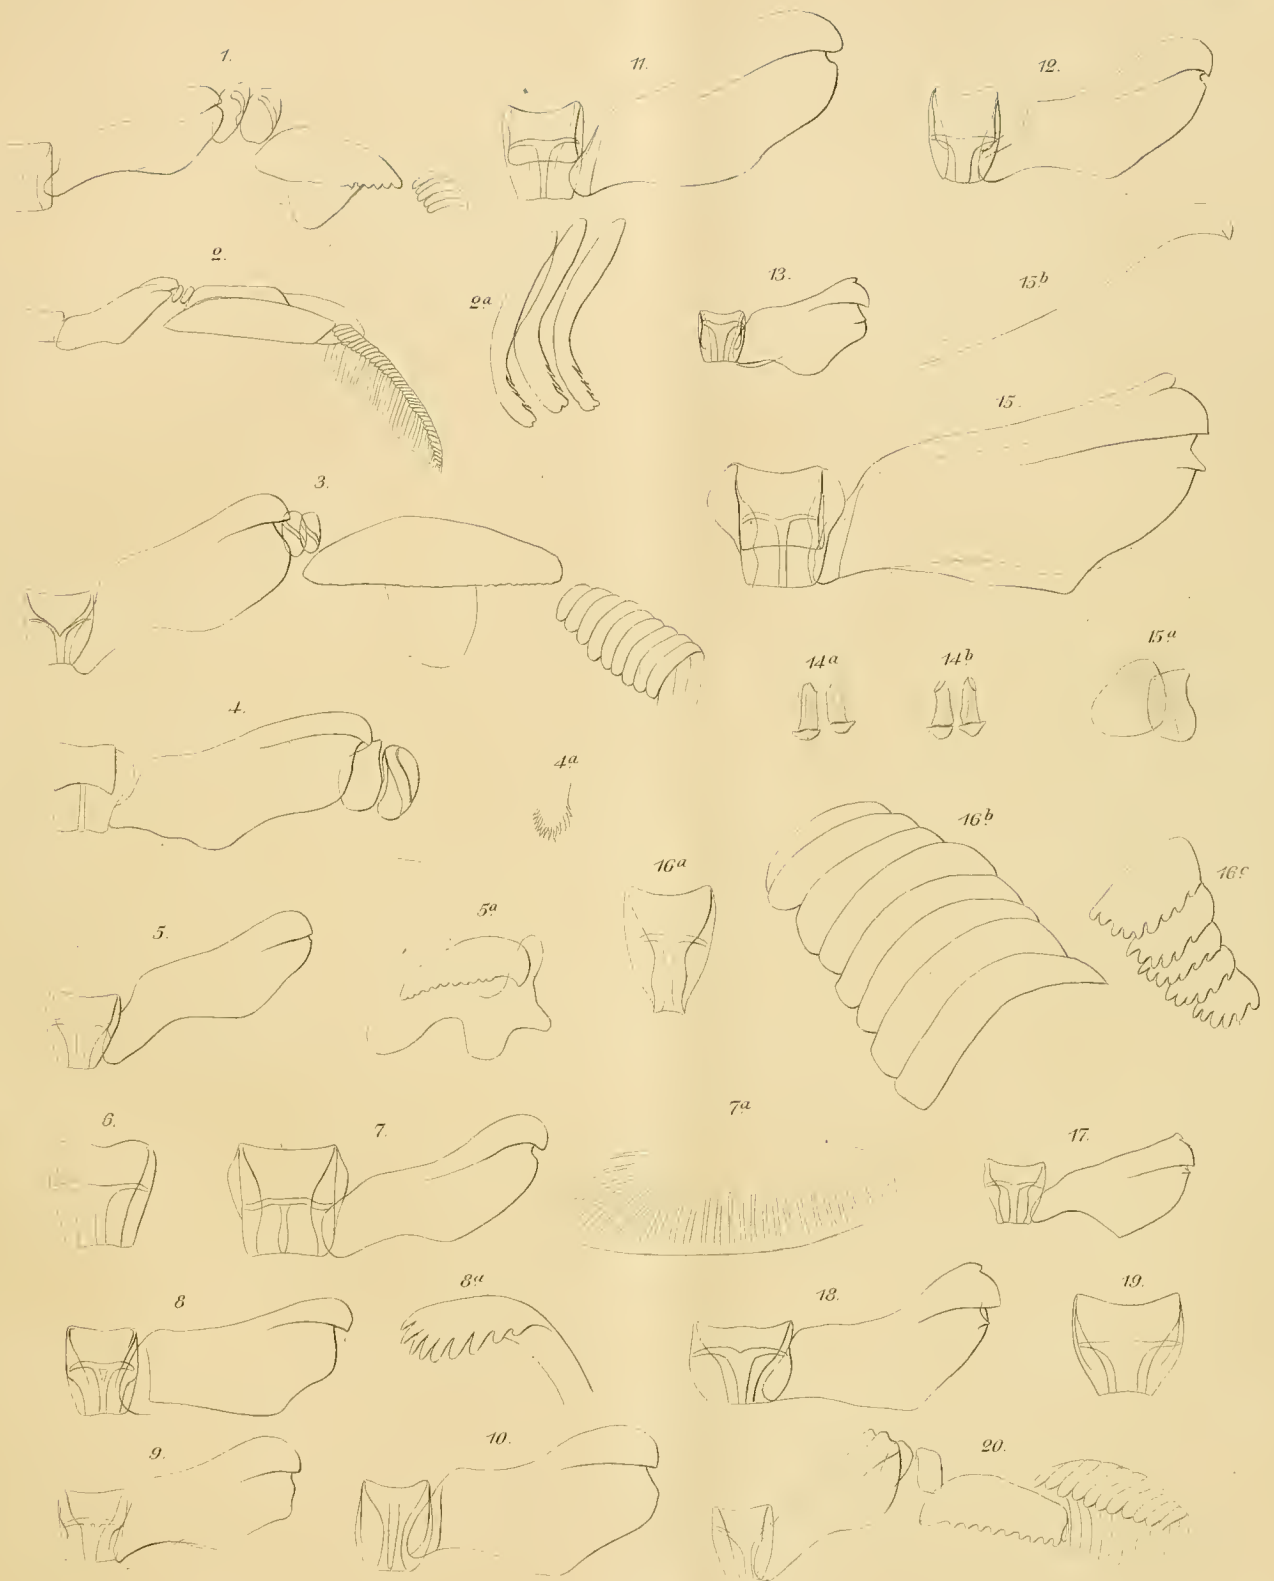 1.
11.
12.
2.
2a
13.
15b
15.
3.
14a
14b
15a
4.
4a
16a
16b
16c
5.
5a
6.
7.
7a
17.
8
8a
18.
19.
9.
10.
20.